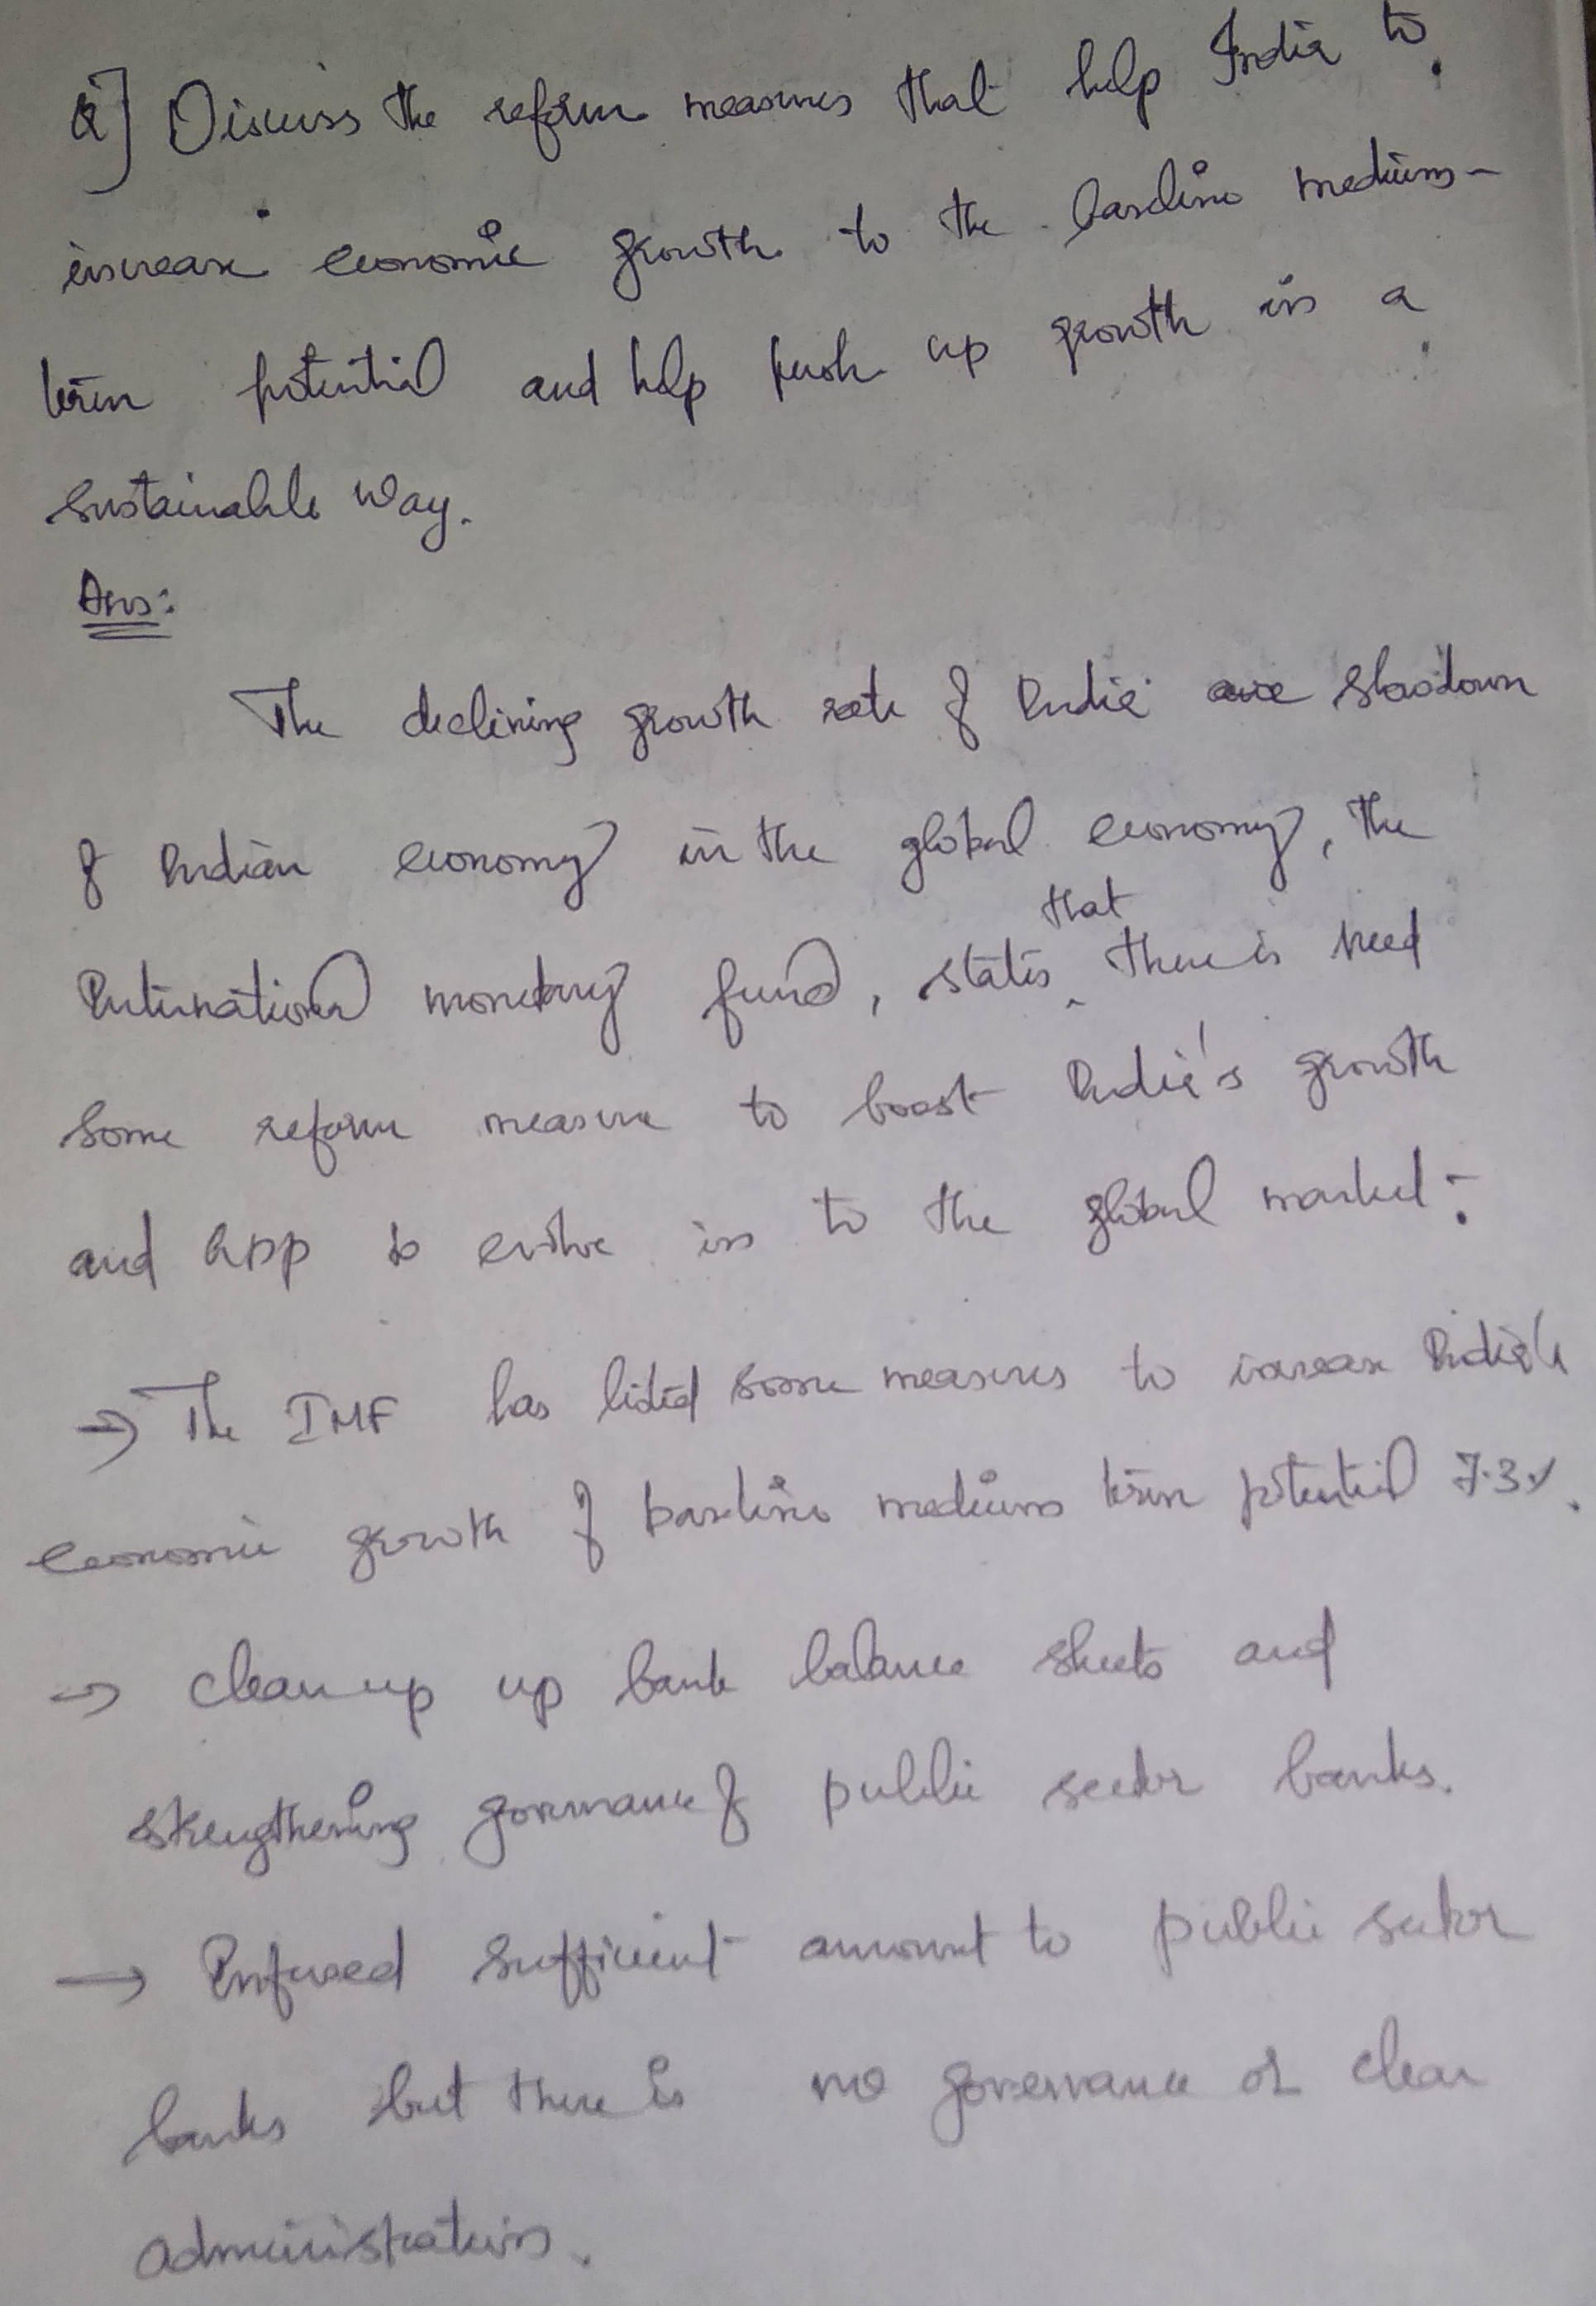 Q] Discuss the reform measures that help India to
increase economic growth to the baseline medium-
term potential and help push up growth in a
sustainable way.
Ans:
The declining growth rate of India are slowdown
of Indian economy in the global economy, the
International monetary fund, states that there is need
some reform measure to boost India's growth
and GDP to evolve in to the global market:-
→ The IMF has listed some measures to increase India's
economic growth of baseline medium term potential 7.3%.
→ cleanup up bank balance sheets and
strengthening governance of public sector banks.
→ Infused sufficient amount to public sector
banks but there is no governance or clear
administration.